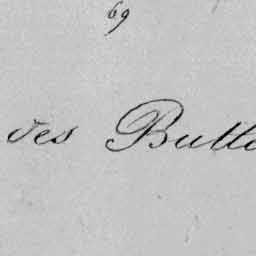 69
des Butt